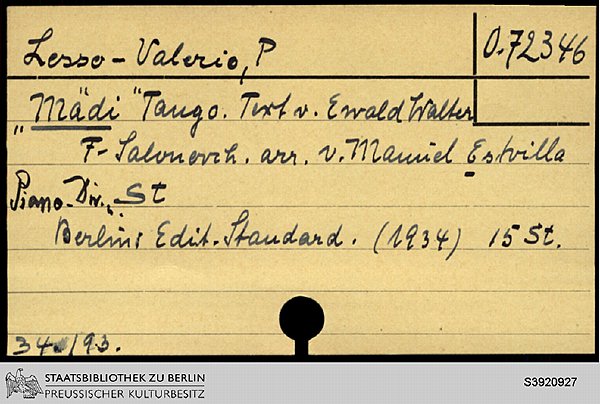 Lesso-Valerio, P
O.72346
„Mädi" Tango. Text v. Ewald Walter
F. Salonorch. arr. v. Manuel Estvilla
Piano-Dir.-St
Berlin: Edit. Standard. (1934) 15 St.
34/93.
STAATSBIBLIOTHEK ZU BERLIN
PREUSSISCHER KULTURBESITZ
S3920927